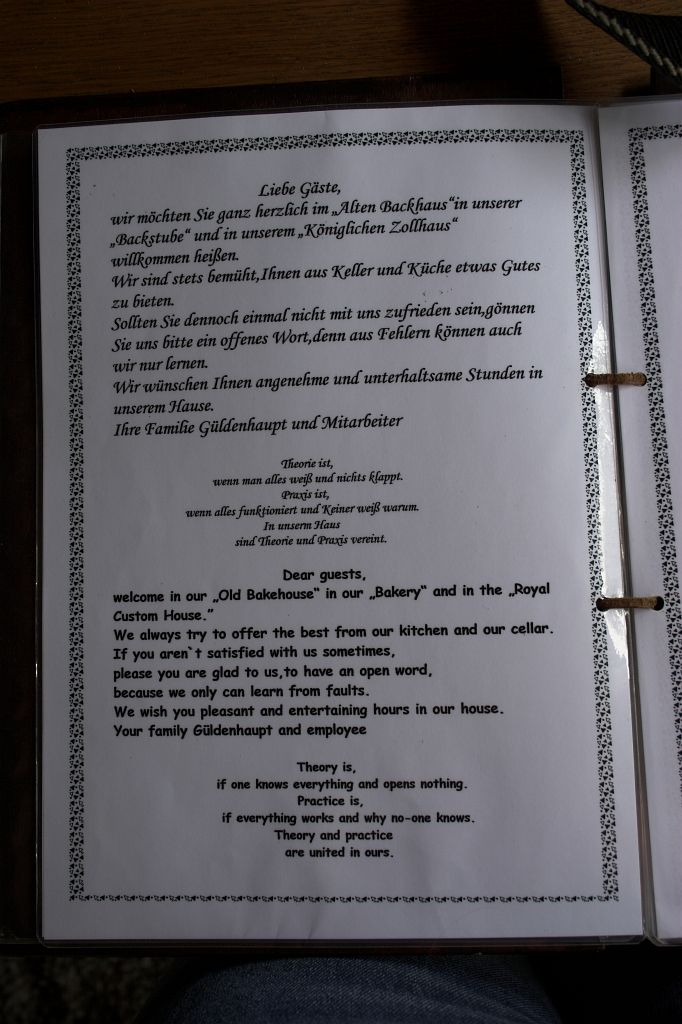 Liebe Gäste,
wir möchten Sie ganz herzlich im „Alten Backhaus“in unserer
„Backstube“ und in unserem „Königlichen Zollhaus“
willkommen heißen.
Wir sind stets bemüht,Ihnen aus Keller und Küche etwas Gutes
zu bieten.
Sollten Sie dennoch einmal nicht mit uns zufrieden sein,gönnen
Sie uns bitte ein offenes Wort,denn aus Fehlern können auch
wir nur lernen.
Wir wünschen Ihnen angenehme und unterhaltsame Stunden in
unserem Hause.
Ihre Familie Güldenhaupt und Mitarbeiter
Theorie ist,
wenn man alles weiß und nichts klappt.
Praxis ist,
wenn alles funktioniert und Keiner weiß warum.
In unserm Haus
sind Theorie und Praxis vereint.
Dear guests,
welcome in our „Old Bakehouse“ in our „Bakery“ and in the „Royal
Custom House.”
We always try to offer the best from our kitchen and our cellar.
If you aren`t satisfied with us sometimes,
please you are glad to us,to have an open word,
because we only can learn from faults.
We wish you pleasant and entertaining hours in our house.
Your family Güldenhaupt and employee
Theory is,
if one knows everything and opens nothing.
Practice is,
if everything works and why no-one knows.
Theory and practice
are united in ours.